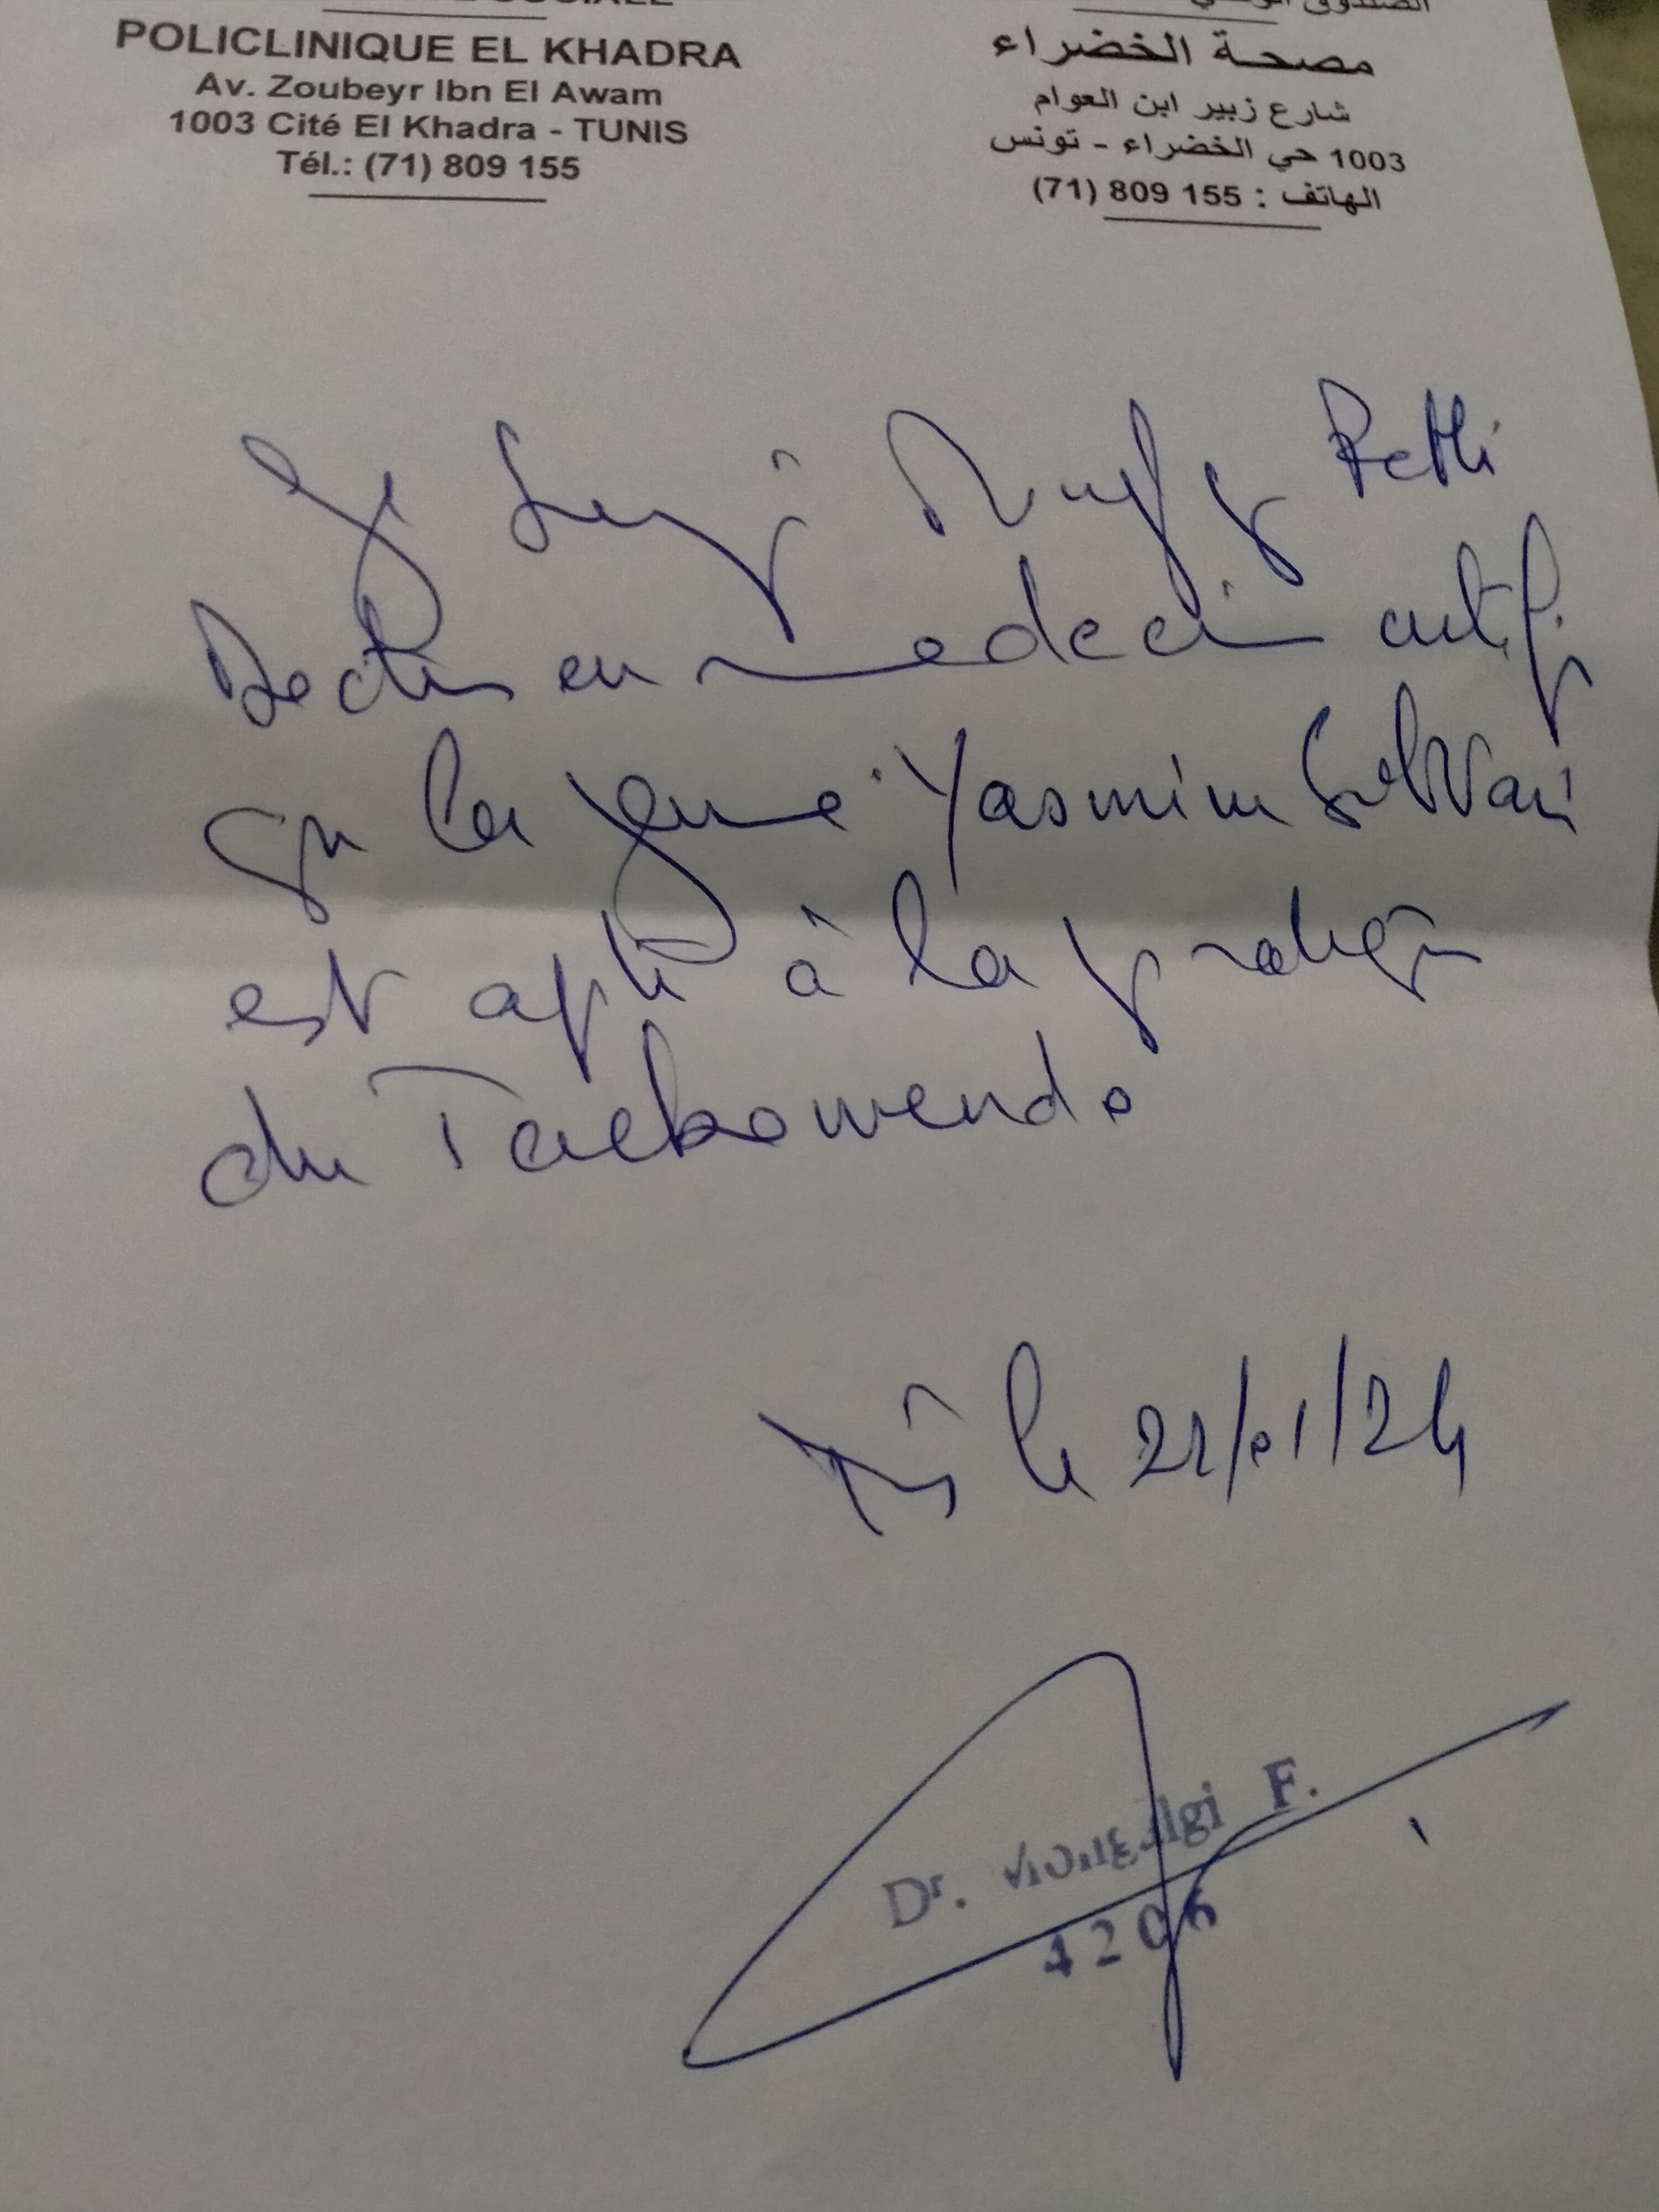 POLICLINIQUE EL KHADRA
Av. Zoubeyr Ibn El Awam
1003 Cité El Khadra - TUNIS
Tél.: (71) 809 155
الصندوق
مصحة الخضراء
شارع زبير ابن العوام
1003 حي الخضراء - تونس
الهاتف : 155 809 (71)
Je
en medecin certifi
que la jeune Yasmine
est apte à la pratique
du Taekowendo
le 22/01/24
Dr. F.
4206